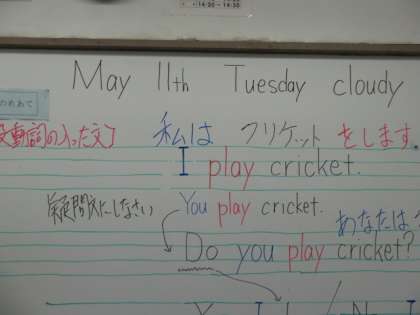 14:20 - 14:30
May 11th Tuesday cloudy
のめあて
動詞の入った文〕 私は クリケット をします。
I play cricket.
疑問文にしなさい You play cricket. あなたは
Do you play cricket?